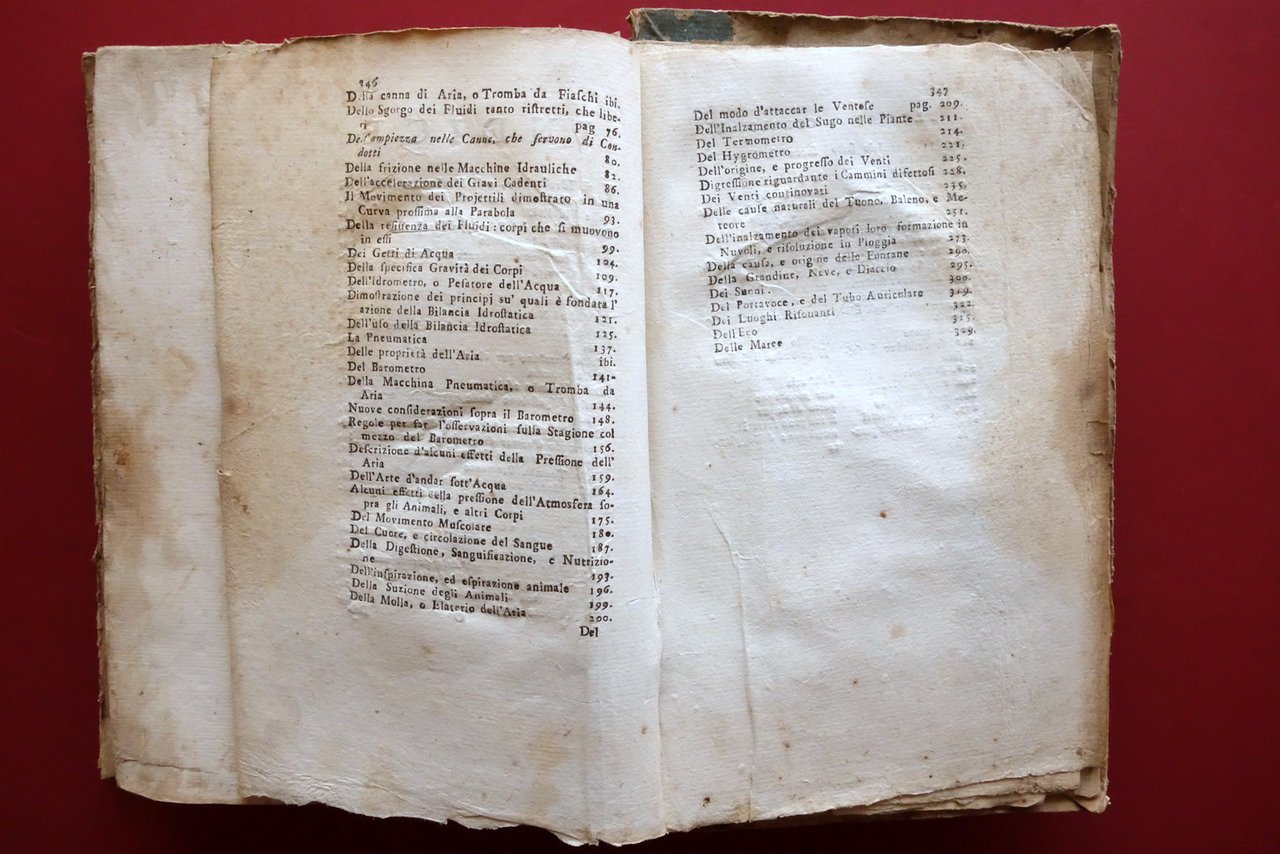 346
Della canna di Aria, o Tromba da Fiaschi ibi.
Dello Sgorgo dei Fluidi tanto ristretti, che libe-
ri pag 76.
Dell'ampiezza nelle Canne, che servono di Con-
dotti 80.
Della frizione nelle Macchine Idrauliche 82.
Dell'accelerazione dei Gravi Cadenti 86.
Il Movimento dei Projettili dimostrato in una
Curva prossima alla Parabola 93.
Della resistenza dei Fluidi: corpi che si muovono
in essi 99.
Dei Getti di Acqua 104.
Della specifica Gravità dei Corpi 109.
Dell'Idrometro, o Pesatore dell'Acqua 117.
Dimostrazione dei principj su' quali è fondata l'
azione della Bilancia Idrostatica 121.
Dell'uso della Bilancia Idrostatica 125.
La Pneumatica 137.
Delle proprietà dell'Aria ibi.
Del Barometro 141.
Della Macchina Pneumatica, o Tromba da
Aria 144.
Nuove considerazioni sopra il Barometro 148.
Regole per far l'osservazioni sulla Stagione col
mezzo del Barometro 156.
Descrizione d'alcuni effetti della Pressione dell'
Aria 159.
Dell'Arte d'andar sott'Acqua 164.
Alcuni effetti della pressione dell'Atmosfera so-
pra gli Animali, e altri Corpi 175.
Del Movimento Muscolare 180.
Del Cuore, e circolazione del Sangue 187.
Della Digestione, Sanguificazione, e Nutrizio-
ne 193.
Dell'inspirazione, ed espirazione animale 196.
Della Suzione degli Animali 199.
Della Molla, o Elaterio dell'Aria 200.
Del
347
Del modo d'attaccar le Ventose pag. 209.
Dell'Inalzamento del Sugo nelle Piante 211.
Del Termometro 214.
Del Hygrometro 221.
Dell'origine, e progresso dei Venti 225.
Digressione riguardante i Cammini difettosi 228.
Dei Venti continovati 235.
Delle cause naturali del Tuono, Baleno, e Me-
teore 251.
Dell'inalzamento dei vapori loro formazione in
Nuvoli, e risoluzione in Pioggia 273.
Della causa, e origine delle Funtane 290.
Della Grandine, Neve, e Diaccio 295.
Dei Suoni. 300.
Del Portavoce, e del Tubo Auricolare 319.
Dei Luoghi Risonanti 322.
Dell'Eco 325.
Delle Maree 329.